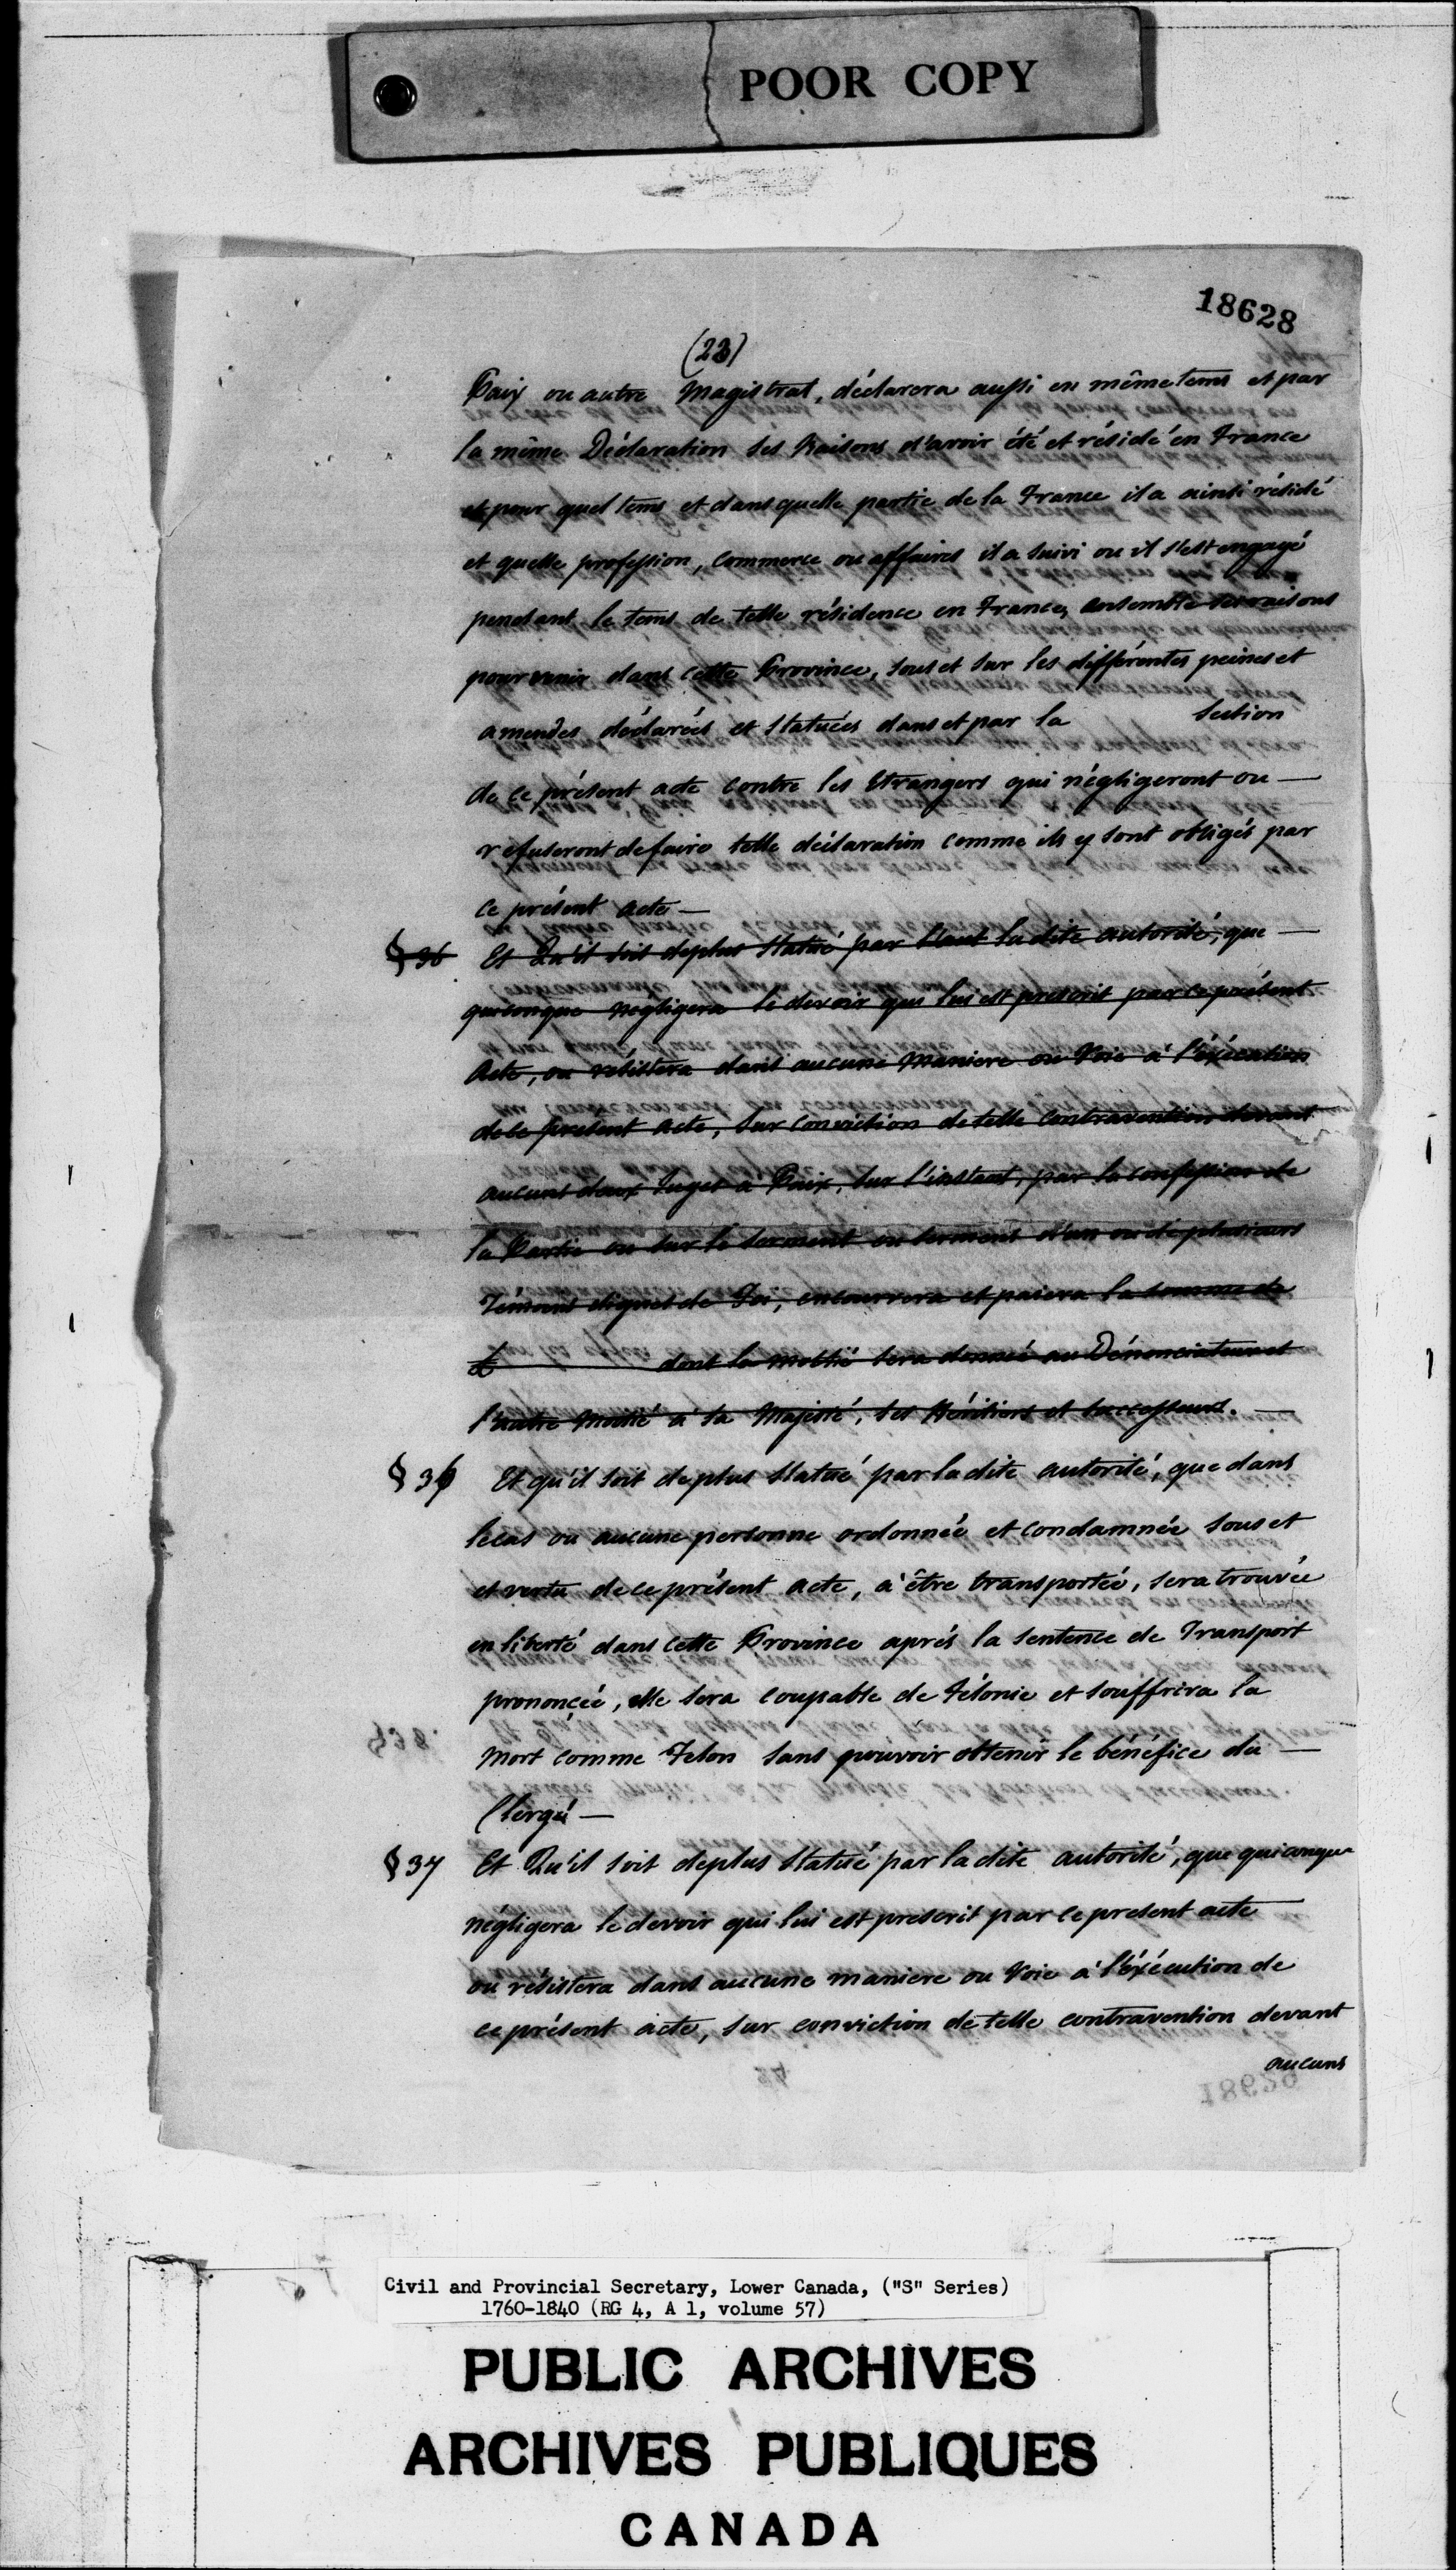 POOR COPY
18628
(23)
Paix ou autre Magistrat, déclarera aussi en même tems et par
la même Déclaration ses Raisons d'avoir été et résidé en France
et pour quel tems et dans quelle partie de la France il a ainsi résidé
et quelle profession, commerce ou affaires il a suivi ou il s'est engagé
pendant le tems de telle résidence en France, ensemble ses raisons
pour venir dans cette Province, sous et sur les différentes peines et
amendes déclarées et statuées dans et par la Section
de ce présent acte contre les Etrangers qui négligeront ou —
refuseront de faire telle déclaration comme ils y sont obligés par
ce présent acte —
§ 36 Et Qu'il soit deplus Statué par la dite autorité, que —
quiconque negligera le devoir qui lui est prescrit par ce présent
Acte, ou résistera dans aucune maniere ou Voie à l'éxécution
de ce présent Acte, sur conviction de telle contravention devant
aucuns deux Juges à Paix, sur l'instant, par la confession de
la Partie ou sur le serment ou serments d'un ou de plusieurs
Témoins dignes de Foi, encourrera et paiera la somme de
£ dont la moitié sera donnée au Dénonciateur et
l'autre moitié à sa Majesté, ses Héritiers et Successeurs. —
§ 36 Et qu'il soit deplus Statué par la dite autorité, que dans
le cas ou aucune personne ordonnée et condamnée sous et
et vertu de ce présent acte, à être transportée, sera trouvée
en liberté dans cette Province aprés la sentence de Transport
prononcée, elle sera coupable de Félonie et souffrira la
mort comme Felon sans pouvoir obtenir le bénéfice du —
Clergé —
§ 37 Et Qu'il soit deplus Statué par la dite autorité, que quiconque
négligera le devoir qui lui est prescrit par ce present acte
ou résistera dans aucune maniere ou Voie à l'éxécution de
ce présent acte, sur conviction de telle contravention devant
aucuns
Civil and Provincial Secretary, Lower Canada, ("S" Series)
1760-1840 (RG 4, A 1, volume 57)
PUBLIC ARCHIVES
ARCHIVES PUBLIQUES
CANADA